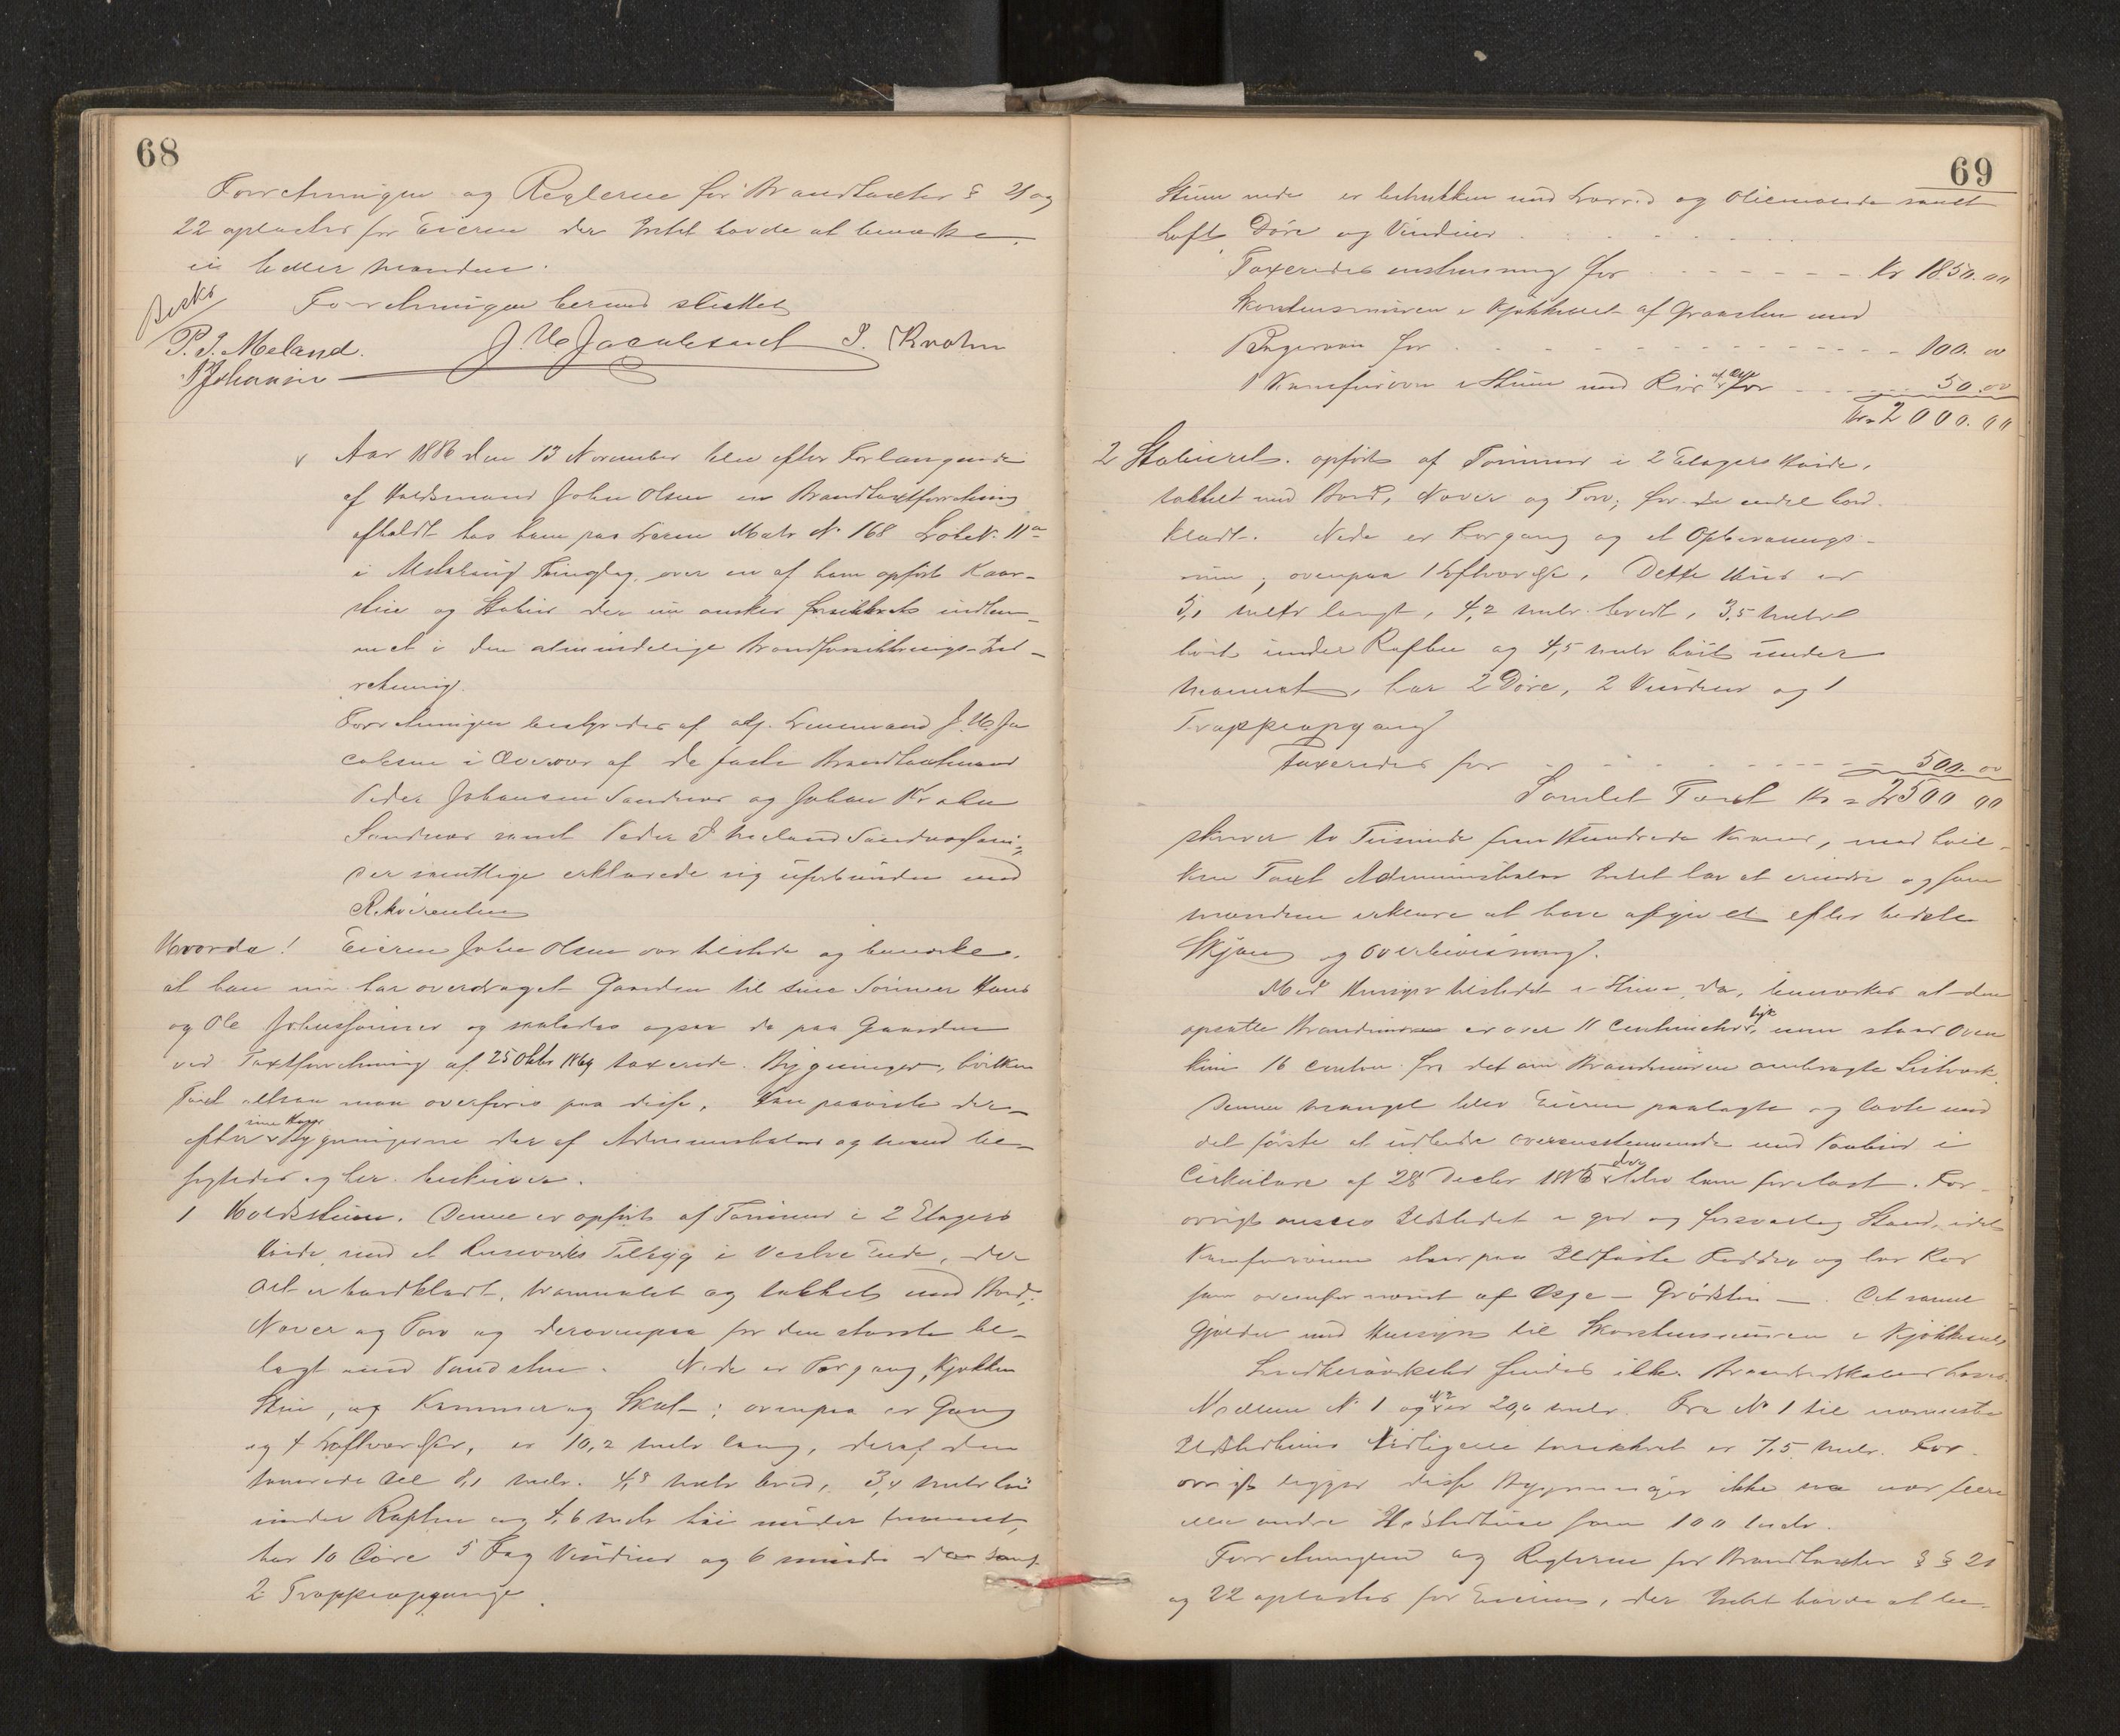 68
Forretningen og Reglerne for Brandtaxter § 21 og
22 oplæstes for Eieren der Intet havde at bemærke
ei heller Mændene.
Forretningen hermed sluttet
Beskr
P. J. Meland. J. M. Jacobsen J. Krohn
P Johansen
Aar 1886 den 13 November blev efter Forlangende
af Gaardmand John Olsen en Brandtaxtforretning
afholdt hos ham paa Matr No 168 Løbe No 11a
i Thinglag, over en af ham opført Vaan-
stue og Stabur der nu ønskes forsikkret indlem-
met i den almindelige Brandforsikkrings-Ind-
retning.
Forretningen bestyredes af adj. Lensmand J. M. Ja
cobsen i Overvær af de faste Brandtaxtmænd
Peder Johansen Sandnes og Johan Krohn
Sandnes samt Peder J Meland
der samtlige erklærede sig uforbunden med
Rekvirenten
Hvorda! Eieren John Olsen var tilstede og bemærke,
at han nu har overdraget Gaarden til sine Sønner Hans
og Ole Johnsønner og maatte ogsaa de paa Gaarden
ved Taxtforretning af 25 Oktbr 1869 taxerede Bygninger, hvilken
Taxt altsaa maa overføres paa disse. Han paaviste der-
efter Bygningerne der af Administrator og Mænd be-
sigtedes og her beskrives.
1 Vaaningsstuen. Denne er opført af Tømmer i 2 Etagers
Høide med et Tilbyg i Vestre Ende, der
Alt er bordklædt, og tækket med Bord,
Næver og Torv og derovenpaa for den største be-
lagt med . Nede er Forgang, Kjøkken
Stue, og Kammer og Skab; ovenpaa er Gang
og 4 Loftværelser, er 10,2 meter lang, deraf den
tømrede Del 8,1 metr. 4,8 metr bred, 3,4 metr høi
under Raften og 4,6 metr høi under Mønnet,
har 10 Døre 5 Fag Vinduer og 6 mindre samt
2 Trappeopgange.
69
Stuen nede er betrukken med Lærred og Oliemalede samt
Loft, Døre og Vinduer
Taxeredes enstemmig for Kr 1850.00
Skorstensmuren i Kjøkkenet af Graasten med
Bagerovn for 100.00
1 Kamfurovn i Stuen med Rør for 50.00
Kr. 2000.00
2 Staburet. opført af Tømmer i 2 Etagers Høide,
tækket med Bord, Næver og Torv; for en Del bord-
klædt. Nede er Forgang og et Opbevarings-
rum; ovenpaa 1 Loftværelse. Dette Hus er
5,1 metr langt, 4,2 metr. bredt, 3,5 meter
høit under Raften og 4,5 metr høit under
Mønnet, har 2 Døre, 2 Vinduer og 1
Trappeopgang
Taxeredes for 500.00
Samlet Taxt Kr = 2500 00
skriver to Tusinde fem Hundrede Kroner, mod hvil-
ken Taxt Administrator Intet har at erindre og som
Mændene erklære at have afgivet efter bedste
Skjøn og Overbeviisning.
Med Hensyn til Ildstedet i Stuen da, bemærkes at den
opsatte Brandmur er over 11 Centimeter tyk, men staar Oven
kun 16 Centm. fra det om Brandmuren anbragte Listverk.
Denne Mangel blev Eieren paalagte og lovte med
det første at udbedre overensstemmende med Paabud i
Cirkulære af 28 Decbr 1883 der blev ham forelæst. For-
øvrigt ansees Ildstedet i god og forsvarlig Stand, idet
Kamfurovnen staar paa Ildfaste Fødder og har Rør
som ovenfor nævnt af Esje- Grødsten - . Det samme
Gjælder med Hensyn til Skorstensmuren i Kjøkkenet,
Snedkerværksted findes ikke. Brandredskaber haves.
Mellem No 1 og No 2 er 20,0 metr. Fra No 1 til nærmeste
Ildstedhuus tidligere forsikkret er 7.5 metr. For-
øvrigt ligger disse Bygninger ikke nær flere
eller andre Ildstedhuse som 100 metr.
Forretningen og Reglerne for Brandtaxter § § 21
og 22 oplæstes for Eieren, der Intet havde at be-